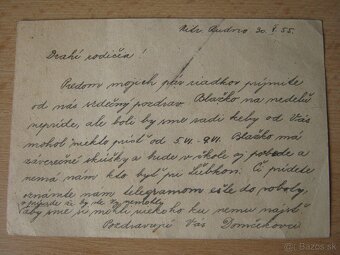 Nitr. Rudno 30. V. 55.
Drahí rodičia!
Predom mojich pár riadkov prijmite
od nás srdečný pozdrav. Blažko na nedeľu
nepríde, ale boli by sme radi keby od Vás
mohol niekto prísť od 5.VI.-9.VI. Blažko má
záverečné skúšky a bude v škole aj poobede a
nemá nám kto byť pri Ľubkovi. Či prídete
oznámte nám telegramom ešte do soboty,
v prípade že by ste vy nemohli
aby sme si mohli niekoho ku nemu nájsť
Pozdravujú Vás Domčekovci
bazar.sk